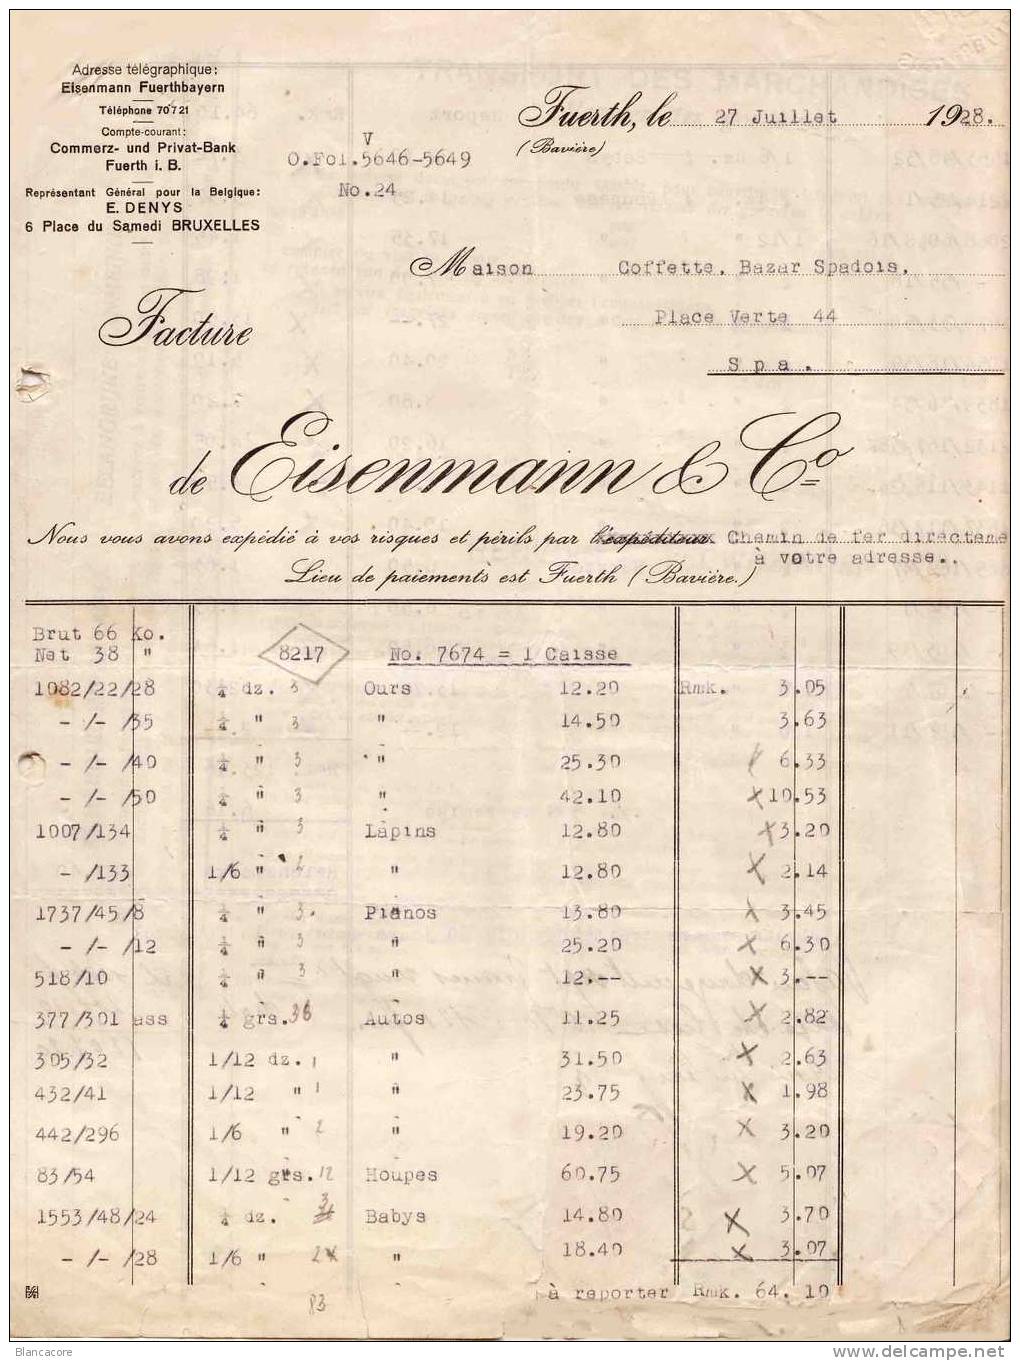 Adresse télégraphique:
Eisenmann Fuerthbayern
Téléphone 70721
Compte-courant:
Commerz- und Privat-Bank
Fuerth i. B.
Représentant Général pour la Belgique:
E. DENYS
6 Place du Samedi BRUXELLES
V
O.Fol.5646-5649
No.24
Fuerth, le 27 Juillet 1928.
(Bavière)
Maison Coffette, Bazar Spadois,
Place Verte 44
Spa.
Facture
de Eisenmann & Co
Nous vous avons expédié à vos risques et périls par l'expéditeur Chemin de fer directeme
à votre adresse..
Lieu de paiements est Fuerth (Bavière.)
Brut 66 Ko.
Net 38 " 8217 No. 7674 = 1 Caisse
1082/22/28 ¼ dz. 3 Ours 12.20 Rmk. 3.05
-/-/35 ¼ " 3 " 14.50 3.63
-/-/40 ¼ " 3 " 25.30 6.33
-/-/50 ¼ " 3 " 42.10 x 10.53
1007/134 ¼ " 3 Lapins 12.80 x 3.20
-/133 1/6 " 2 " 12.80 x 2.14
1737/45/8 ¼ " 3. Pianos 13.80 x 3.45
-/-/12 ¼ " 3 " 25.20 x 6.30
518/10 ¼ " 3 " 12.-- x 3.--
377/301 ass ¼ grs. 36 Autos 11.25 x 2.82
305/32 1/12 dz. 1 " 31.50 x 2.63
432/41 1/12 " 1 " 23.75 x 1.98
442/296 1/6 " 2 " 19.20 x 3.20
83/54 1/12 grs. 12 Houpes 60.75 x 5.07
1553/48/24 ¼ dz. 3 Babys 14.80 x 3.70
-/-/28 1/6 " 2 " 18.40 x 3.07
à reporter Rmk. 64.10
83
Blancacore
delcampe.net